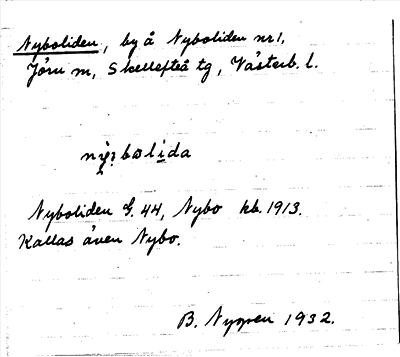 Nyboliden, by å Nyboliden nr 1,
Jörn m, Skellefteå tg, Västerb. l.
bolida
Nyboliden G. 44, Nybo kb. 1913.
Kallas även Nybo.
B. Nyman 1932.